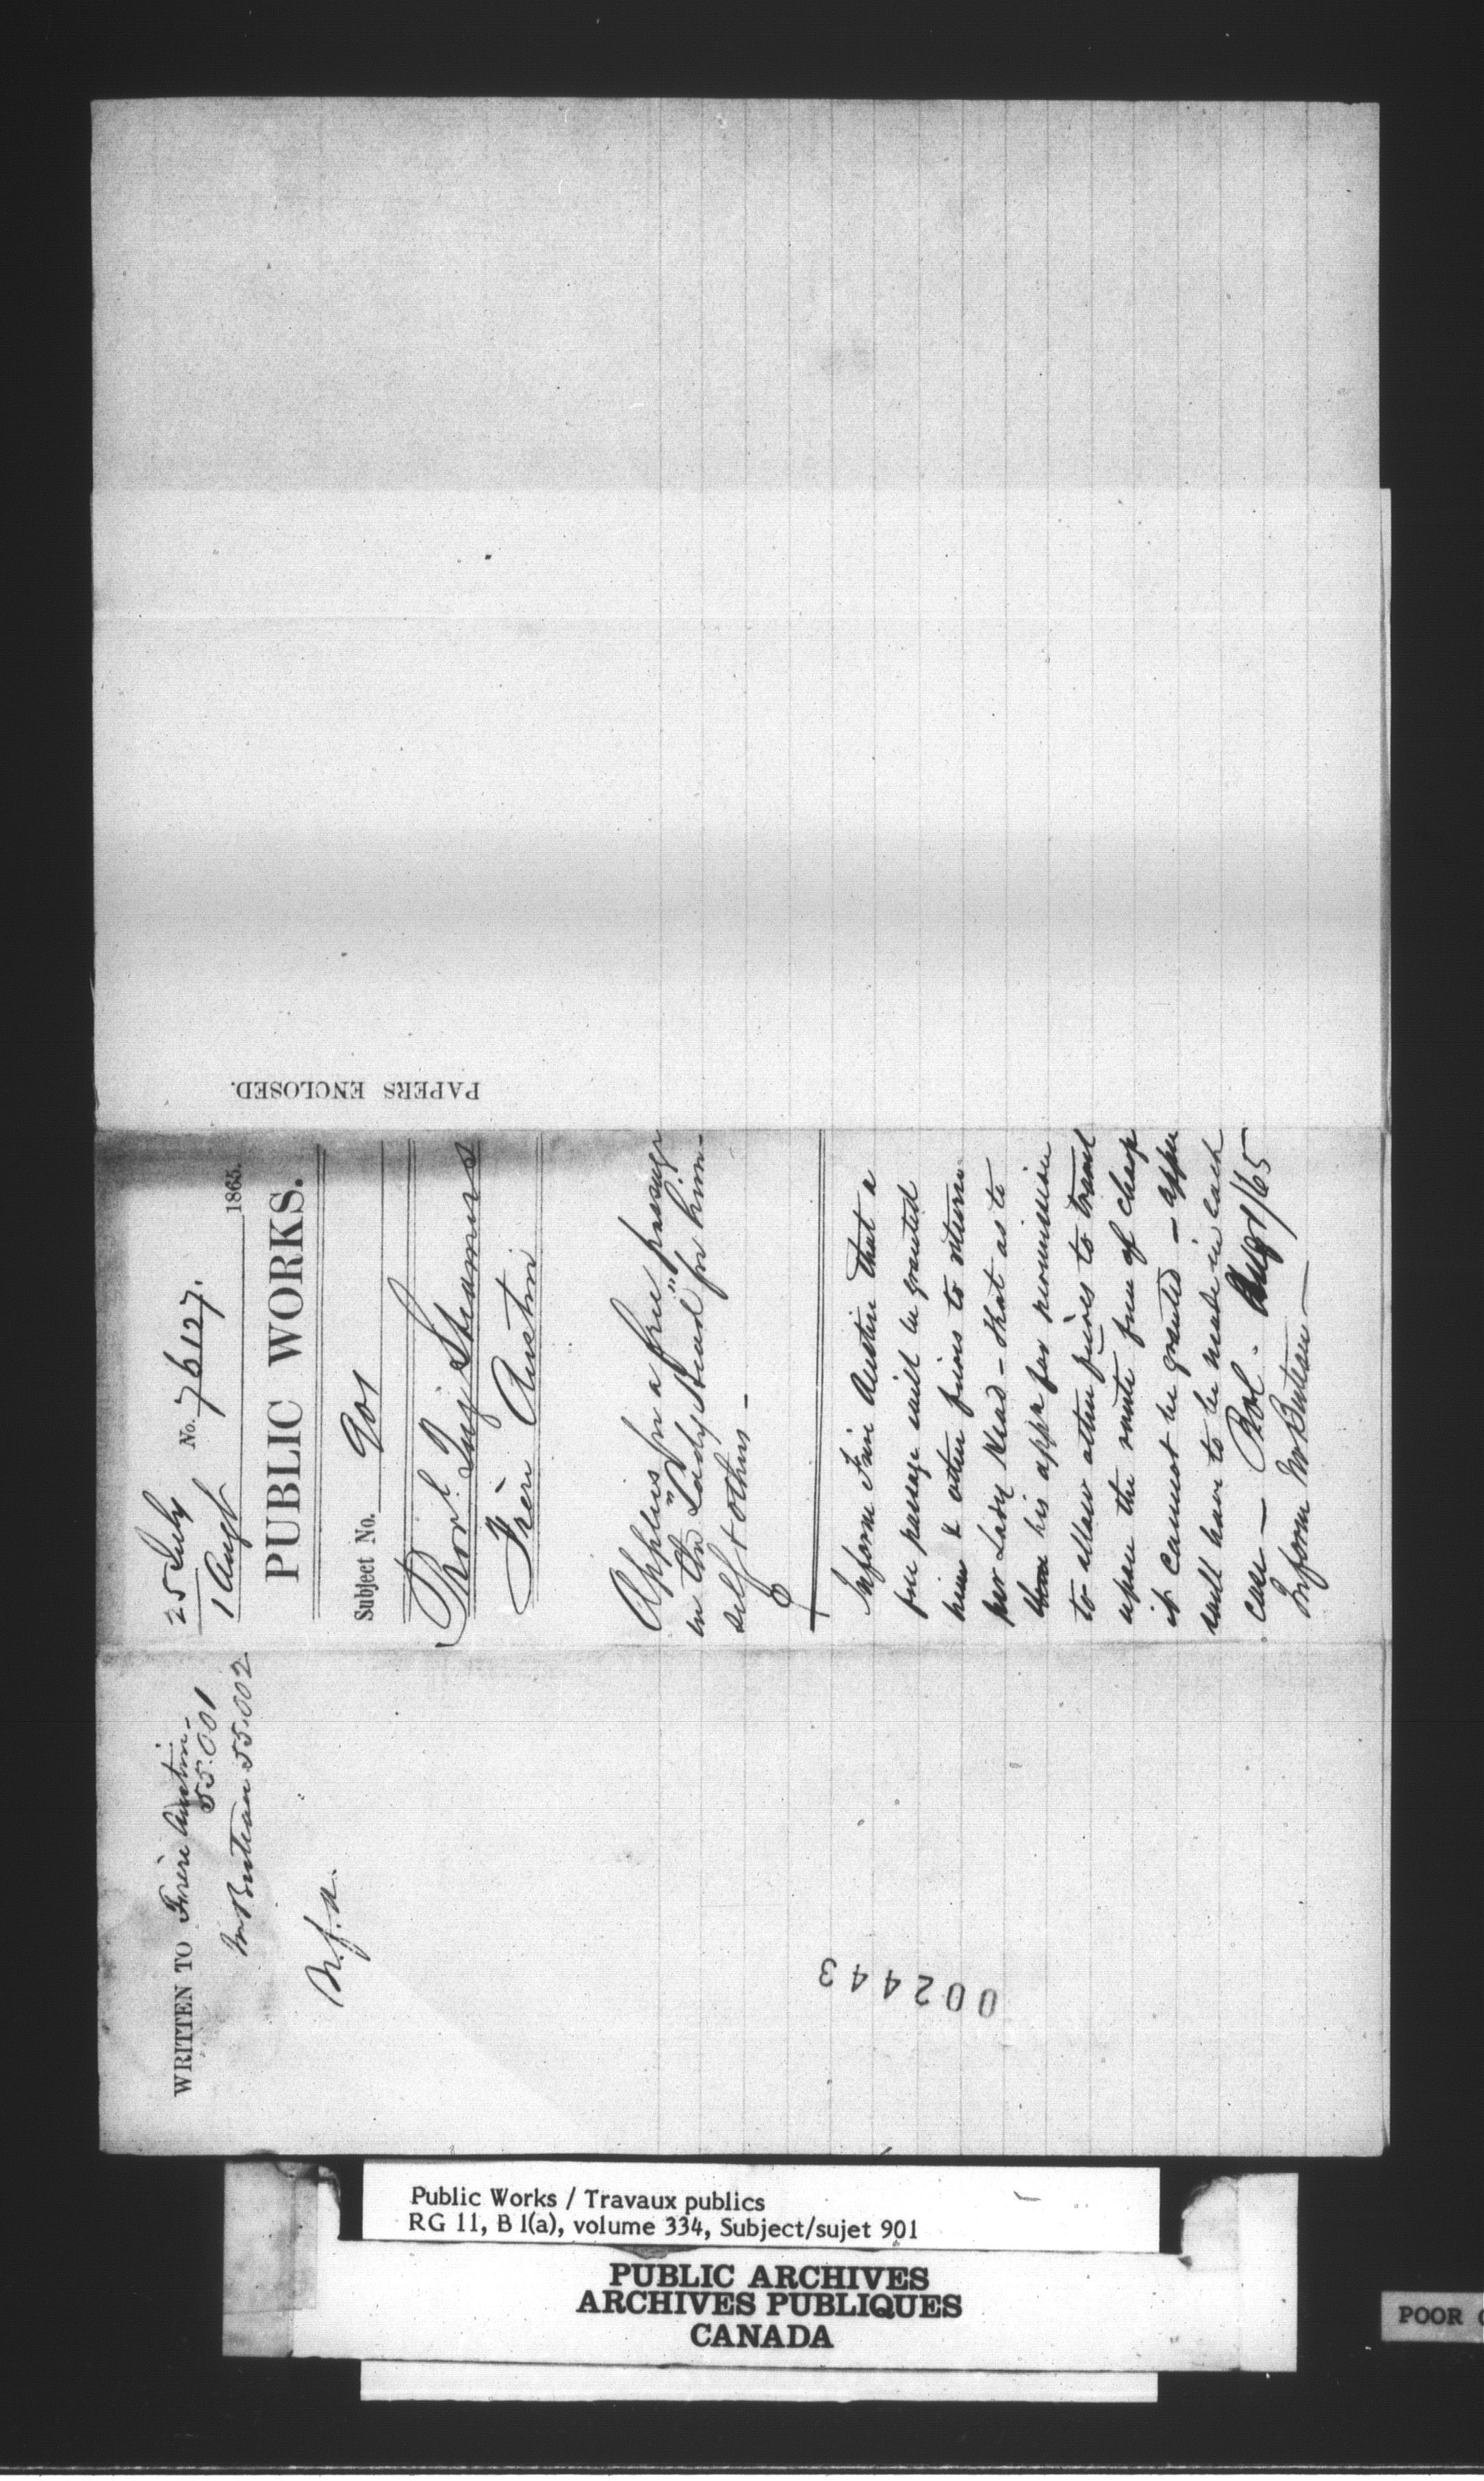 WRITTEN TO Frère Austin -
55.001
Mr Buteau 55.002
n.f.a.
25 July
1 Augt No. 76127. 1865.
PUBLIC WORKS.
Subject No. 901
Provl. Tug Steamers
Frère Austin
Applies for a free passage
in the "Lady Head" for him-
self & others -
Inform Frère Austin that a
free passage will be granted
him & other frères to return
per Lady Head - that as to
his appn for permission
to allow other frères to travel
upon the route free of charge
it cannot be granted - appn
will have to be made in each
case - Aug 1/65
Inform Mr Buteau -
PAPERS ENCLOSED.
002443
Public Works / Travaux publics
RG 11, B 1(a), volume 334, Subject/sujet 901
PUBLIC ARCHIVES
ARCHIVES PUBLIQUES
CANADA
POOR